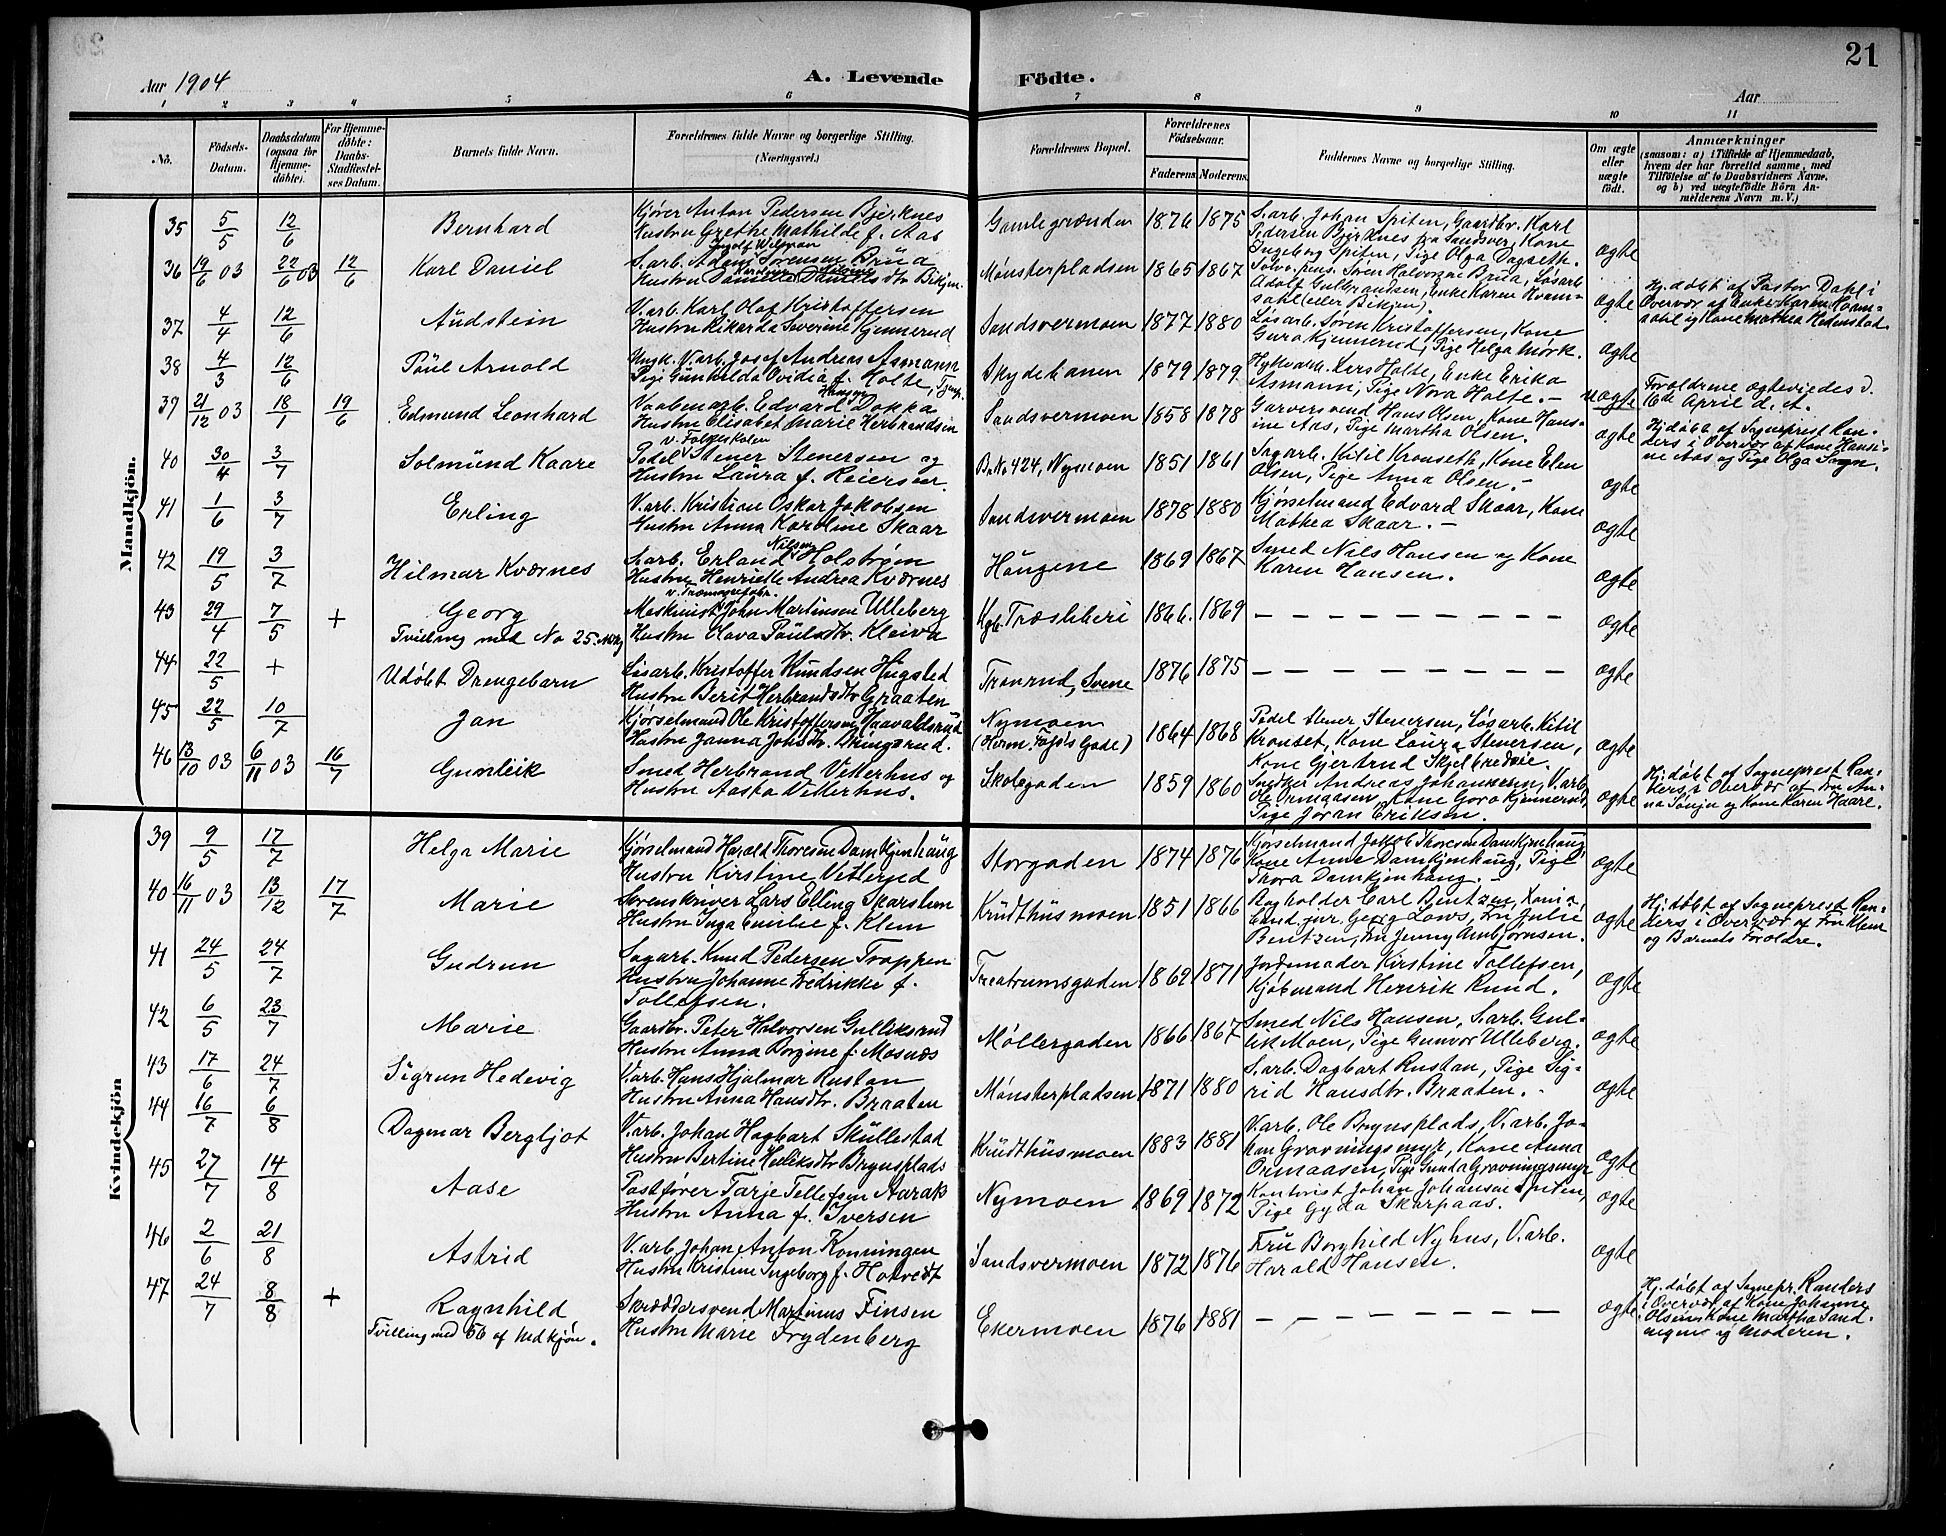 Aar 1904
A. Levende Födte.
Aar
21
1 2 3 4 5 6 7 8 9 10 11
No.
Födsels-Datum.
Daabsdatum (ogsaa for Hjemme-döbte).
For Hjemme-döbte: Daabs-Stadfæstel-ses Datum.
Barnets fulde Navn.
Forældrenes fulde Navne og borgerlige Stilling. (Næringsvei.)
Forældrenes Bopæl.
Forældrenes Födselsaar.
Faderens Moderens
Faddernes Navne og borgerlige Stilling.
Om ægte eller uægte födt.
Anmærkninger
(saasom: a) i Tilfælde af Hjemmedaab,
hvem der har forrettet samme, med
Tilföielse af to Daabsvidners Navne,
og b) ved uægtefödte Börn An-
melderens Navn m.V.)
Mandkjön.
35 5/5 12/6 Bernhard
Kjører Anton Pedersen Bjerknes
Hustru Grethe Mathilde f. Aas
Gamlegrænden 1876 1875
S.arb. Johan Spiten, Gaardbr. Karl
Pedersen Bjerknes fra Sandsvær, Kone
Ingeborg Spiten, Pige Olga Dagseth.
ægte
36 19/6 03 22/6 03 12/6 Karl Daniel
S.arb. Adam Sørensen Brua
Mønsterpladsen 1865 1867
Solvv. pens. Søren Halvorsen Brua, Løsarb
Adolf Gulbrandsen, Enke Karen Kvam-
sahl (eller Bikjen)
ægte
Hj. døbt af Pastor Dahl i
Overvær af Enke Karen Kvam-
sahl og Kone Mathea Hedenstad.
37 4/4 12/6 Audstein
V.arb. Karl Olaf Kristoffersen
Hustru Rikarda Severine Kjennerud
Sandsværmoen 1877 1880
Løsarb. Søren Kristoffersen, Kone
Guro Kjennerud, Pige Helga Mørk.
ægte
38 4/3 12/6 Paul Arnold
Ungk. V.arb. Josef Andreas Asmann
Pige Gunhilda Ovidia f. Holte
Skydebanen 1879 1879
Lars Holte, Enke Erika
Asmann, Pige Nora Holte. –
uægte
Forældrene ægteviedes d.
16de April d. A.
39 21/12 03 18/1 19/6 Edmund Leonhard
Vaabenarb. Edvard Hansen Dokka
Hustru Elisabet Marie Herbrandsen
Sandsværmoen 1858 1878
Garversvend Hans Olsen, Kone Hans-
ine Aas, Pige Martha Olsen.
ægte
Hj. døbt af Sogneprest Ran-
ders i Overvær af Kone Hansi-
ne Aas og Pige Olga
40 30/4 3/7 Solmund Kaare
v. Folkeskolen
Pedel Stener Stenersen og
Hustru Laura f. Reiersen.
B. No 424, Nymoen 1851 1861
Sagarb. Kitil Kronseth, Kone Elen
Olsen, Pige Anna Olsen. –
ægte
41 1/6 3/7 Erling
V.arb. Kristian Oskar Jakobsen
Hustru Anna Karoline Skaar
Sandsværmoen 1878 1880
Kjørselmand Edvard Skaar, Kone
Mathea Skaar. –
ægte
42 19/5 3/7 Hilmar Kværnes
S.arb. Erland Nilsen Holstrøm
Hustru Henriette Andrea Kværnes
Haugene 1869 1867
Smed Nils Hansen og Kone
Karen Hansen.
ægte
43 29/4 7/5 + Georg
Tvilling med No 25.
Maskinist John Martinsen Ulleberg
Hustru Olava Paulsdtr. Kleiva
Kgb. Træsliberi 1866. 1869
– – – – – – – –
ægte
44 22/5 + Udøbt Drengebarn
Løsarb. Kristoffer Knudsen Hugsted
Hustru Berit Herbrandsdtr Graaten
Svene 1876 1875
– – – – – – – –
ægte
45 22/5 10/7 Jan
Kjørselmand Ole Kristoffersen Haavaldsrud
Hustru Janna Johsdtr.
Nymoen
(Herm. Foss's Gade) 1864 1868
Pedel Stener Stenersen, Løsarb. Kitil
Kronset, Kone Laura Stenersen,
Kone Gjertrud Skjelbredeie.
ægte
46 13/10 03 6/11 03 16/7 Gunleik
Smed Herbrand Vitterhus og
Hustru Aasta Vitterhus.
Skolegaden 1859 1860
Andreas Johannesen, V.arb.
Ole Ormaasen, Kone Goro Kjennerud,
Pige Joran Eriksen.
ægte
Hj. døbt af Sogneprest Ran-
ders i Overvær af Fru An-
na Sonju og Kone Karen Haare.
Kvindekjön
39 9/5 17/7 Helga Marie
Kjørselmand Harald Thoresen Damkjenhaug
Hustru Kirstine Vitterud
Storgaden 1874 1876
Kjørselmand Jakob Thoresen Damkjenhaug
Kone Anne Damkjenhaug, Pige
Thora Damkjenhaug. –
ægte
40 16/11 03 13/12 17/7 Marie
Sorenskriver Lars Elling Skarstein
Hustru Inga Emilie f. Klem
Krudthusmoen 1851 1866
Bogholder Carl Bentzen,
Cand. jur. Georg Lows, Fru Julie
Bentzen, Fru Jenny Ambjørnsen.
ægte
Hj. døbt af Sogneprest Ran-
ders i Overvær af Fru Klem
og Barnets Forældre.
41 24/5 24/7 Gudrun
Sagarb. Knud Pedersen Trappen
Hustru Johanne Fredrikke f.
Tollefsen.
Treatrumsgaden 1862 1871
Jordmoder Kirstine Tollefsen,
Kjøbmand Henrik Rund.
ægte
42 6/5 23/7 Marie
Gaardbr. Peter Halvorsen Gulliksrud
Hustru Anna Borgine f. Mosnæs
Møllergaden 1866 1867
Smed Nils Hansen, S.arb. Gul-
lik Moen, Pige Gunvor Ulleberg.
ægte
43 17/6 24/7 Sigrun Hedevig
V.arb. Hans Hjalmar Rustan
Hustru Anna Hansdtr. Braaten
Mønsterpladsen 1871 1880
S.arb. Dagbart Rustan, Pige Sig-
rid Hansdtr. Braaten. –
ægte
44 16/7 6/8 Dagmar Bergljot
V.arb. Johan Hagbart Skullestad
Hustru Bertine Henriksdtr Brynsplads
Krudthusmoen 1883 1881
V.arb. Ole Brynsplads, V.arb. Jo-
han Gravningsmyr, Kone Anna
Ormaasen, Pige Gunda Gravningsmyr
ægte
45 27/7 14/8 Aase
Postfører Tarje Tellefsen Aarak
Hustru Anna f. Iversen
Nymoen 1869 1872
Kontorist Johan Johansen Spiten,
Pige Gyda Skarpaas.
ægte
46 2/6 21/8 Astrid
V.arb. Johan Anton Konningen
Hustru Kristine Ingeborg f. Hotvedt
Sandsværmoen 1872 1876
Fru Borghild Nyhus, V.arb.
Harald Hansen.
ægte
47 24/7 8/8 + Ragnhild
Tvilling med 56 af Mdkjøn.
Skræddersvend Martinus Finsen
Hustru Marie Frydenberg
Ekermoen 1876 1881
– – – – – – – –
ægte
Hj. døbt af Sognepr. Randers
i Overvær af Kone Johanne
Olsen, Kone Martha Sand-
og Moderen.